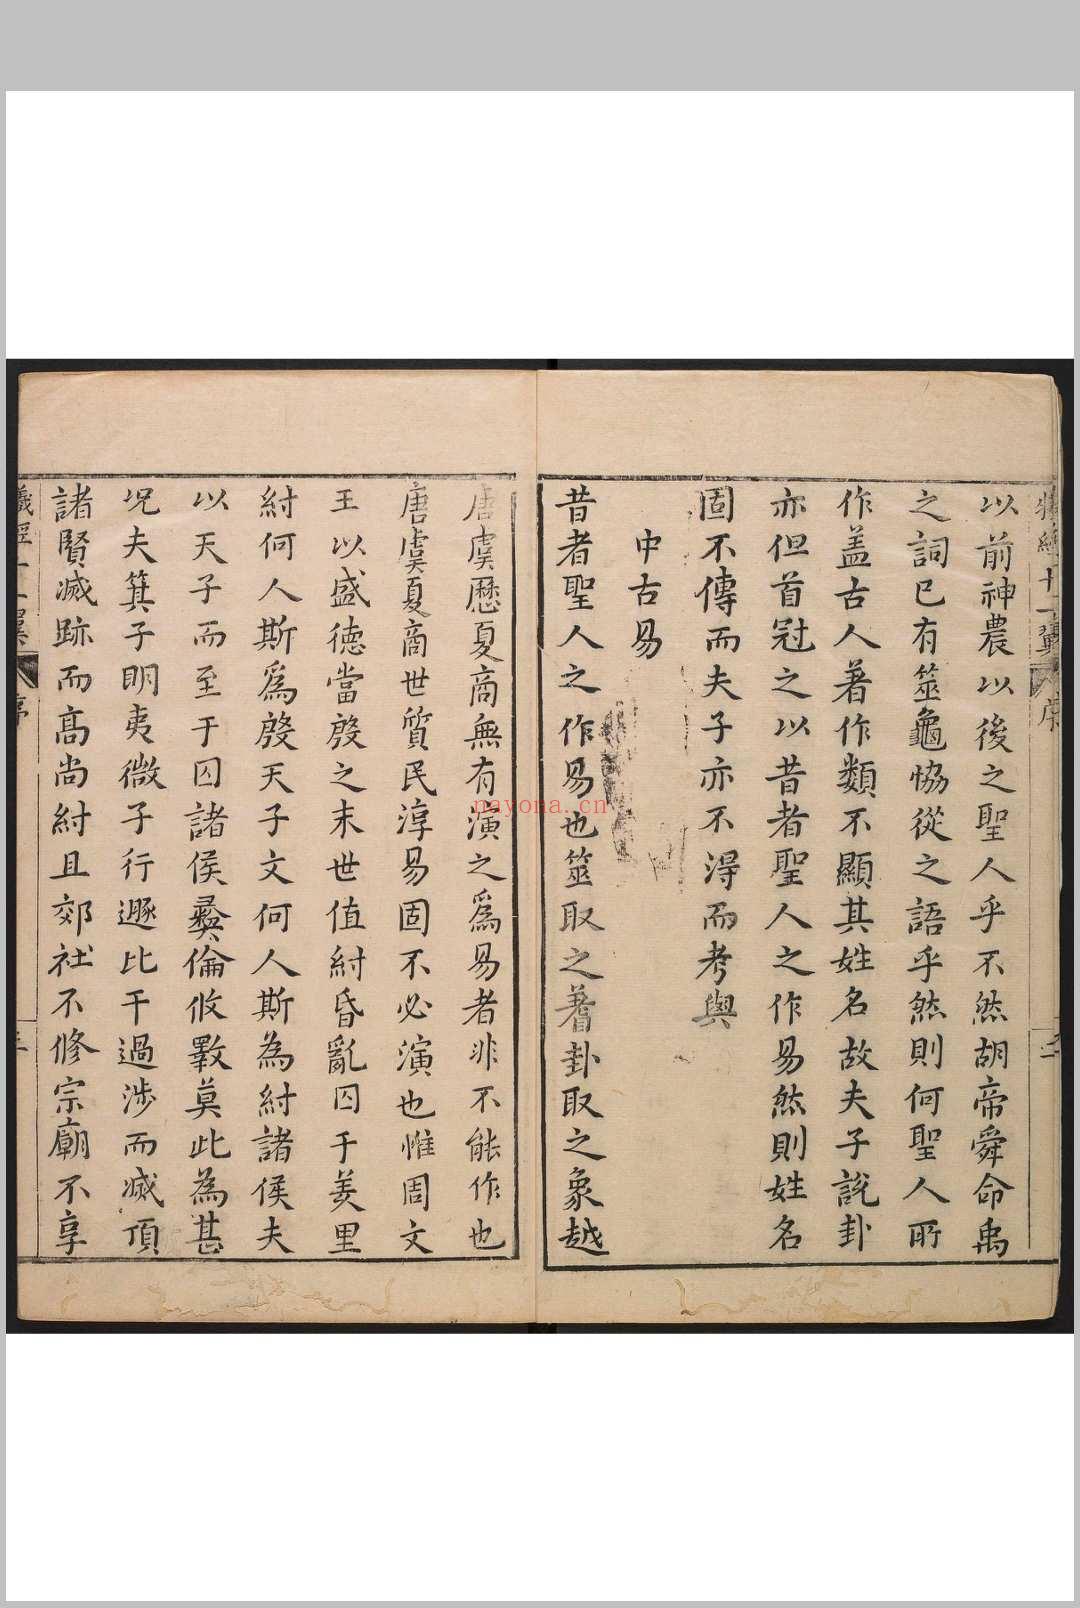 羲經十一翼 序 二
以前神農以後之聖人乎不然胡帝舜命禹
之詞已有筮龜恊從之語乎然則何聖人所
作盖古人著作類不顯其姓名故夫子說卦
亦但首冠之以昔者聖人之作易然則姓名
固不傳而夫子亦不得而考與
中古易
昔者聖人之作易也筮取之蓍卦取之象越
唐虞歷夏商無有演之爲易者非不能作也
唐虞夏商世質民淳易固不必演也惟周文
王以盛德當殷之末世值紂昏亂囚于羑里
紂何人斯爲殷天子文何人斯為紂諸侯夫
以天子而至于囚諸侯彝倫攸斁莫此為甚
况夫箕子明夷微子行遯比干過涉而滅頂
諸賢滅跡而高尚紂且郊社不修宗廟不享
羲經十一翼 序
nayona.cn